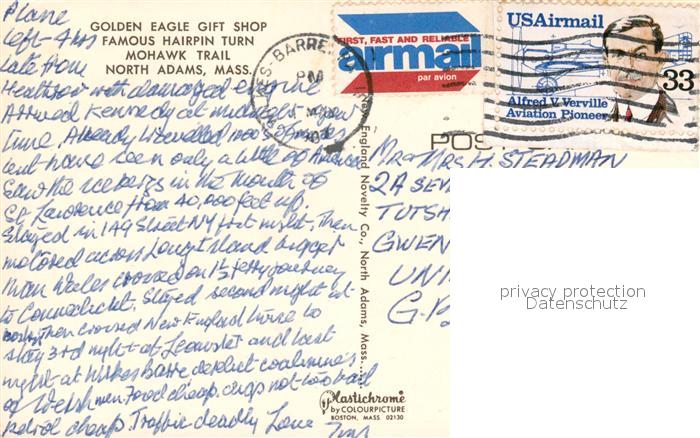 GOLDEN EAGLE GIFT SHOP
FAMOUS HAIRPIN TURN
MOHAWK TRAIL
NORTH ADAMS, MASS.
Plane
left 4 hrs
late from
Heathrow with damaged engine
Arrived Kennedy at midnight
time. Already travelled miles
but have seen only a little of America
Saw the icebergs in the mouth of
St Lawrence from 40,000 feet up.
Stayed in 149 Street NY first night. Then
motored across Long Island bigger
than Wales crossed on 1½ ferry journey
to Connecticut. Stayed second night
then crossed New England to
stay 3rd night at and last
night at Wilkes Barre derelict coalmines
of Welsh men. Food cheap. digs not too bad
petrol cheap. Traffic deadly Love
FIRST, FAST AND RELIABLE
airmail
par avion
WILKES-BARRE
PM
USAirmail
33
Alfred V. Verville
Aviation Pioneer
POST
Mr & Mrs H. STEADMAN
2A SEV
TUTSH
GWEN
UNI
G.B
New England Novelty Co., North Adams, Mass.
Plastichrome
by COLOURPICTURE
BOSTON, MASS 02130
privacy protection
Datenschutz